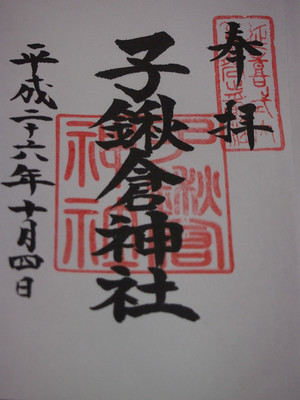 奉拝
子鍬倉神社
平成二十六年十月四日